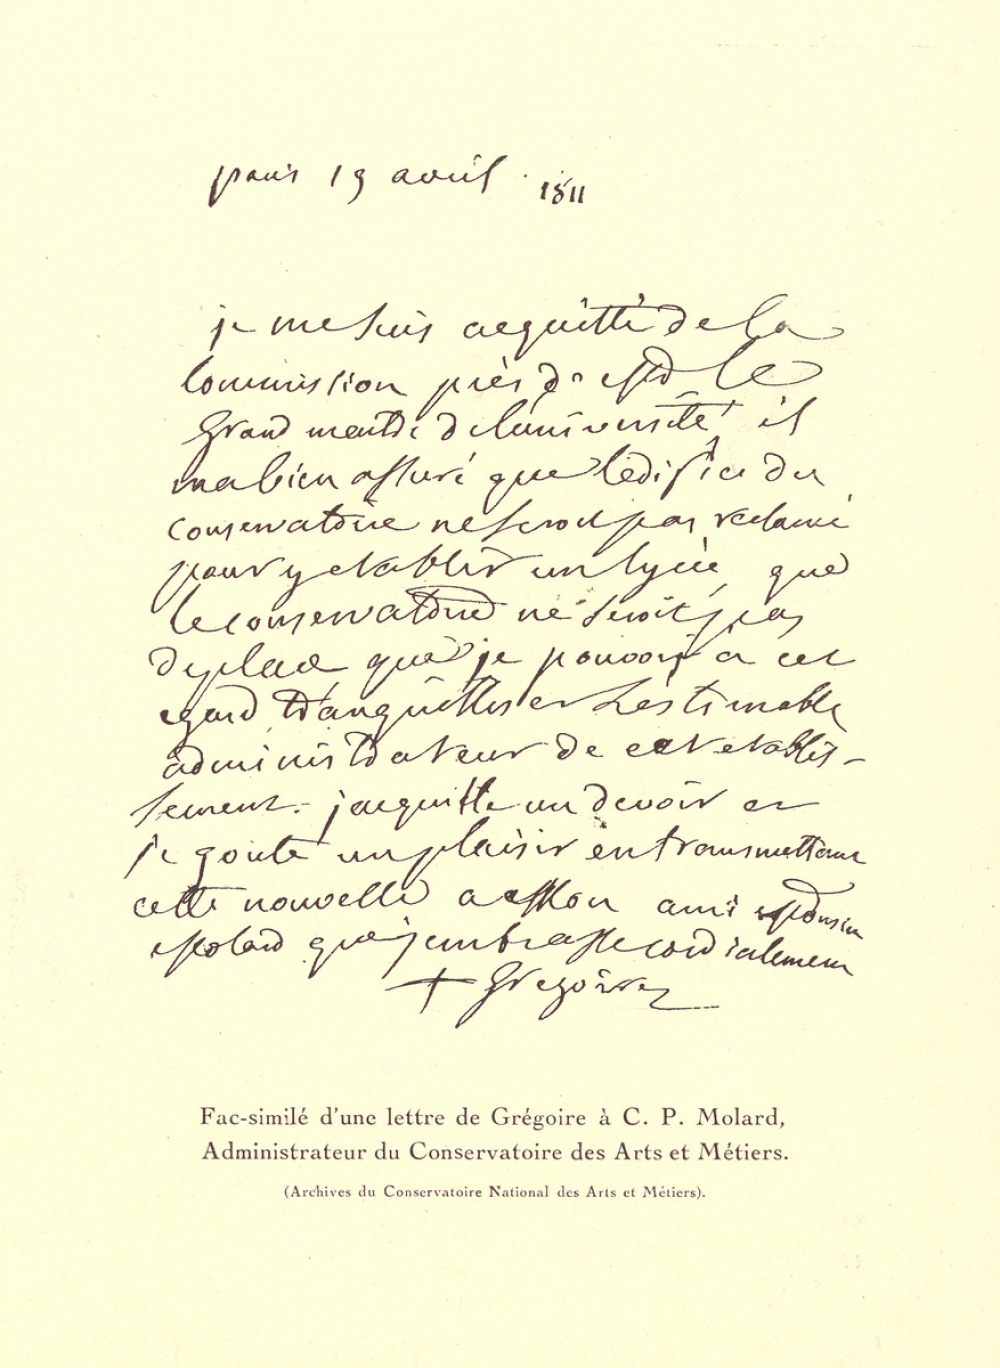 paris 19 avril 1811
je me suis acquitté de la
commission près de Mr le
grand maitre de luniversité il
ma bien assuré que lédifice du
conservatoire ne seroit pas réclamé
pour y etablir un lycée, que
le conservatoire ne seroit pas
deplacé que je pouvois a cet
egard tranquilliser lestimable
administrateur de cet etablis-
sement. jacquitte un devoir et
je goute un plaisir en transmettant
cette nouvelle a mon ami monsieur
molard que jembrasse cordialement
+ Gregoire
Fac-similé d'une lettre de Grégoire à C. P. Molard,
Administrateur du Conservatoire des Arts et Métiers.
(Archives du Conservatoire National des Arts et Métiers).